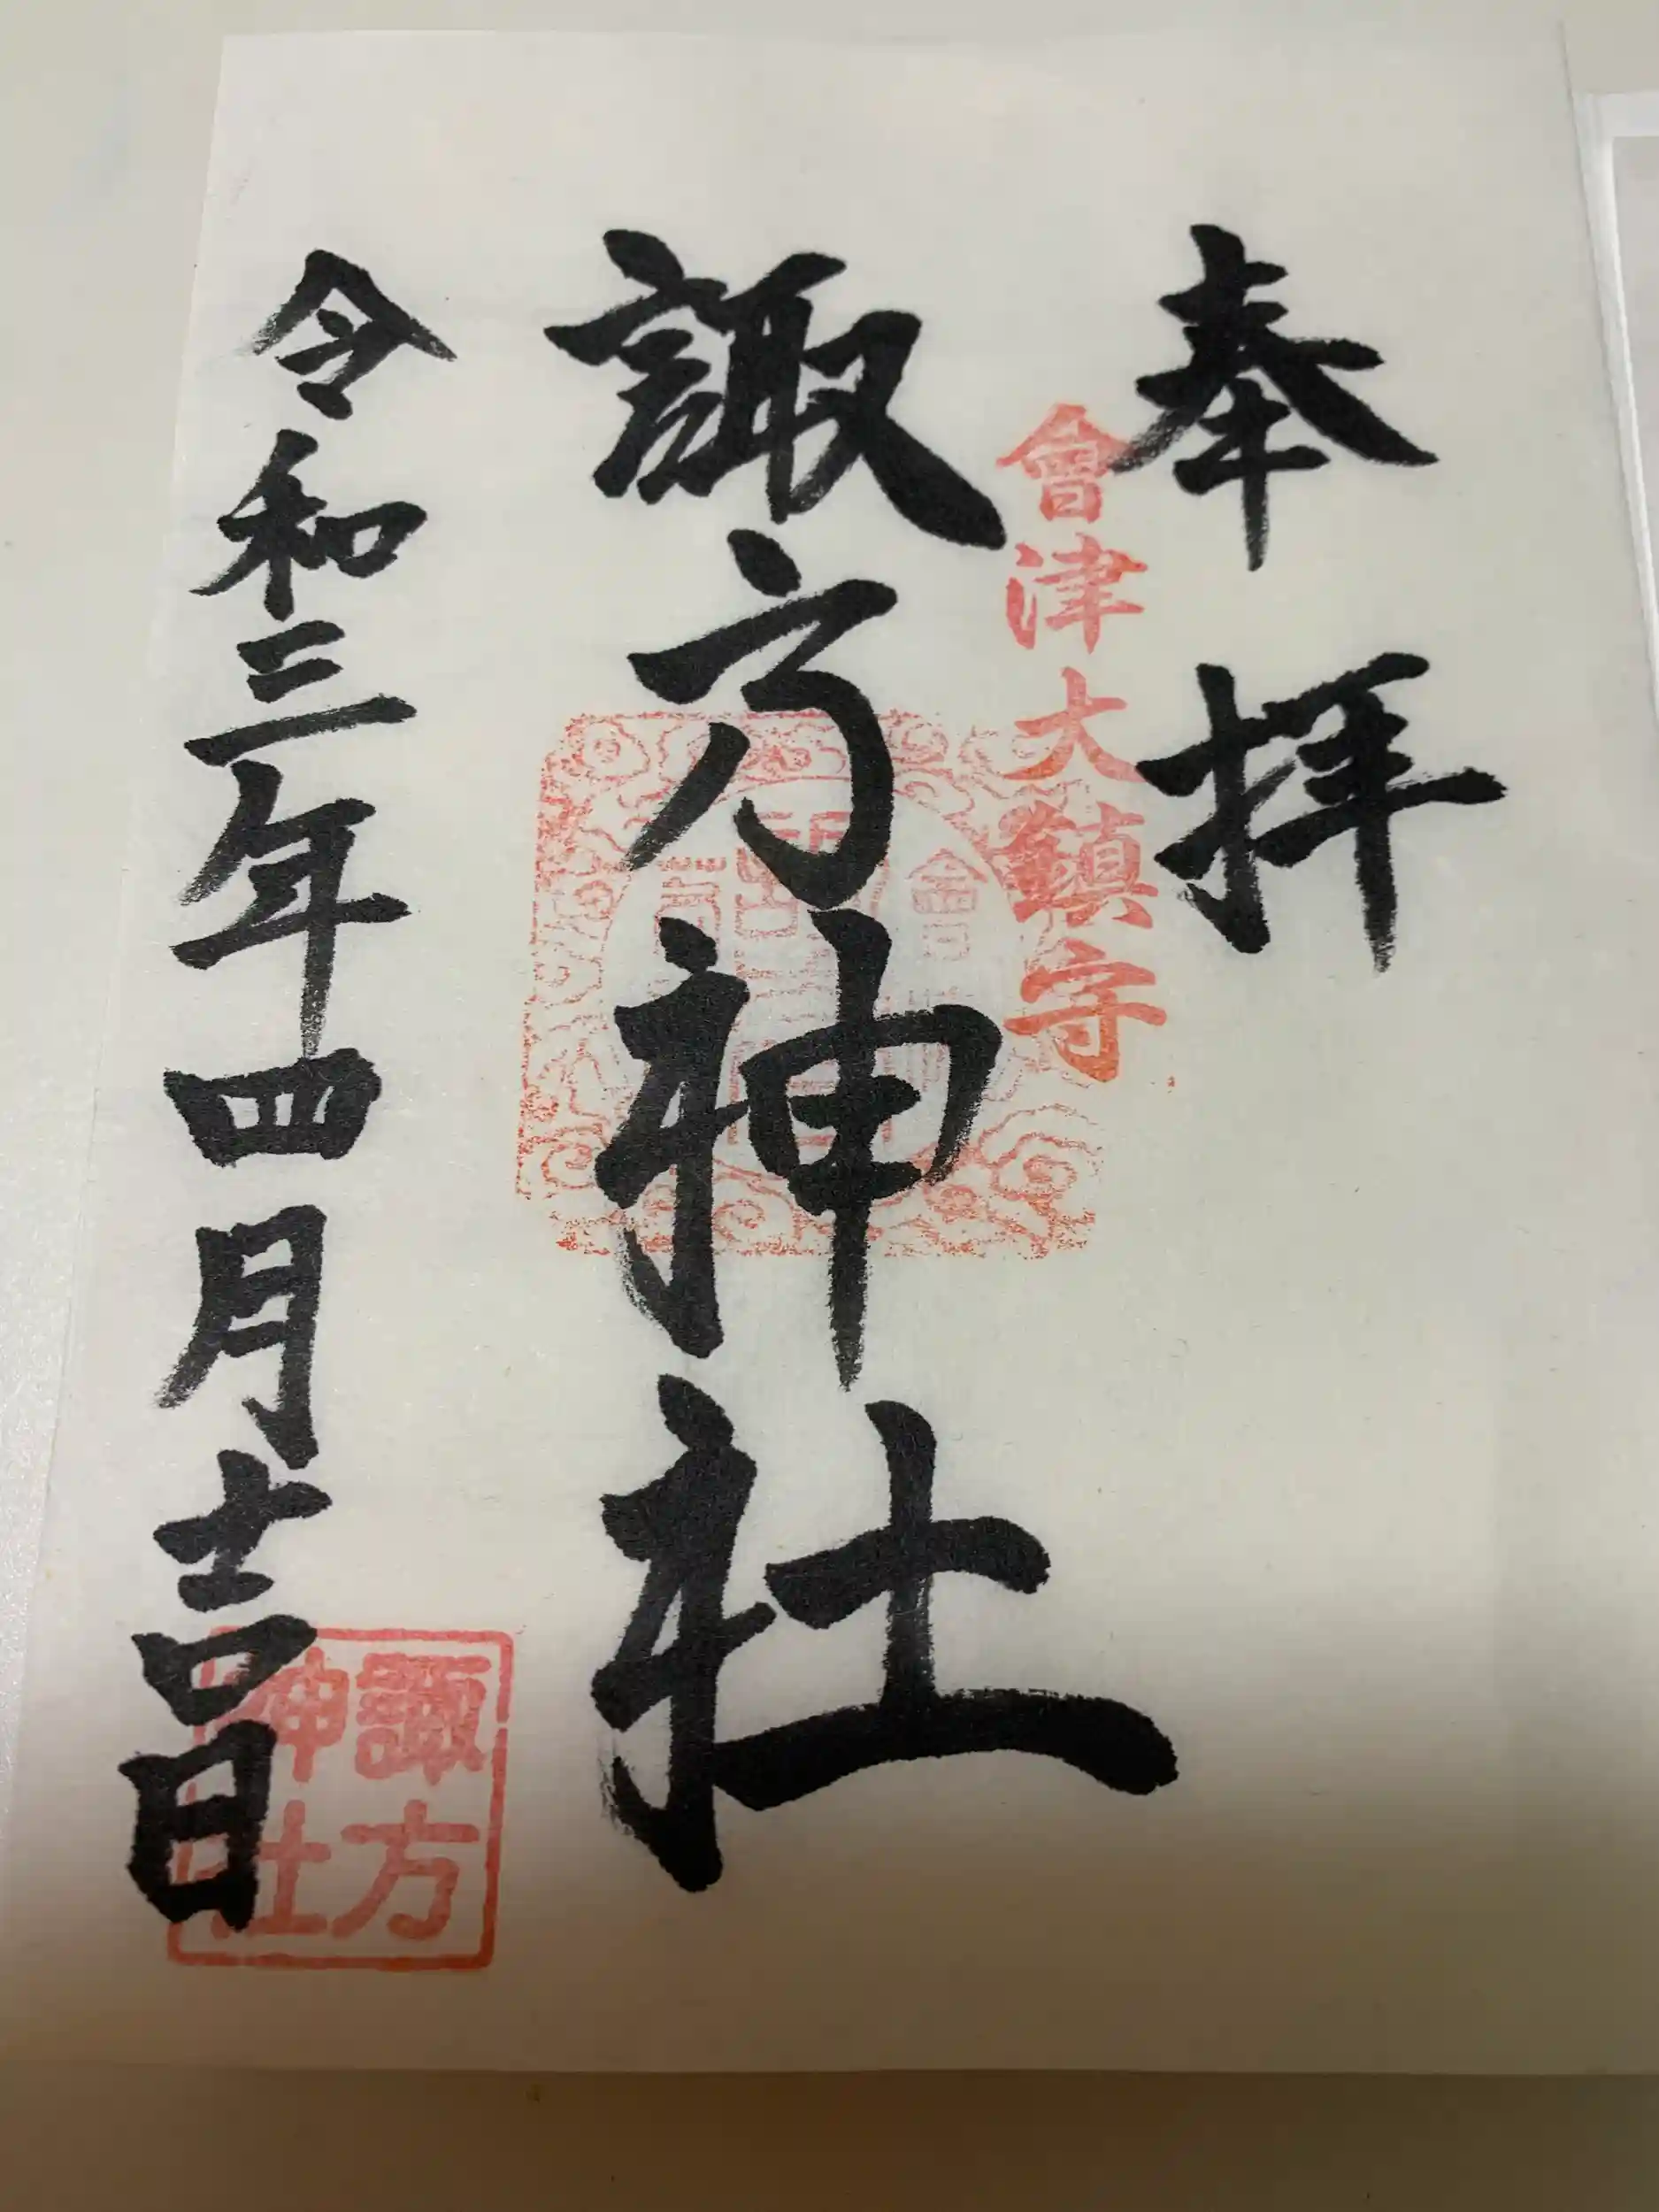 奉拝
會津大鎮守
諏方神社
令和三年四月吉日
諏方
神社